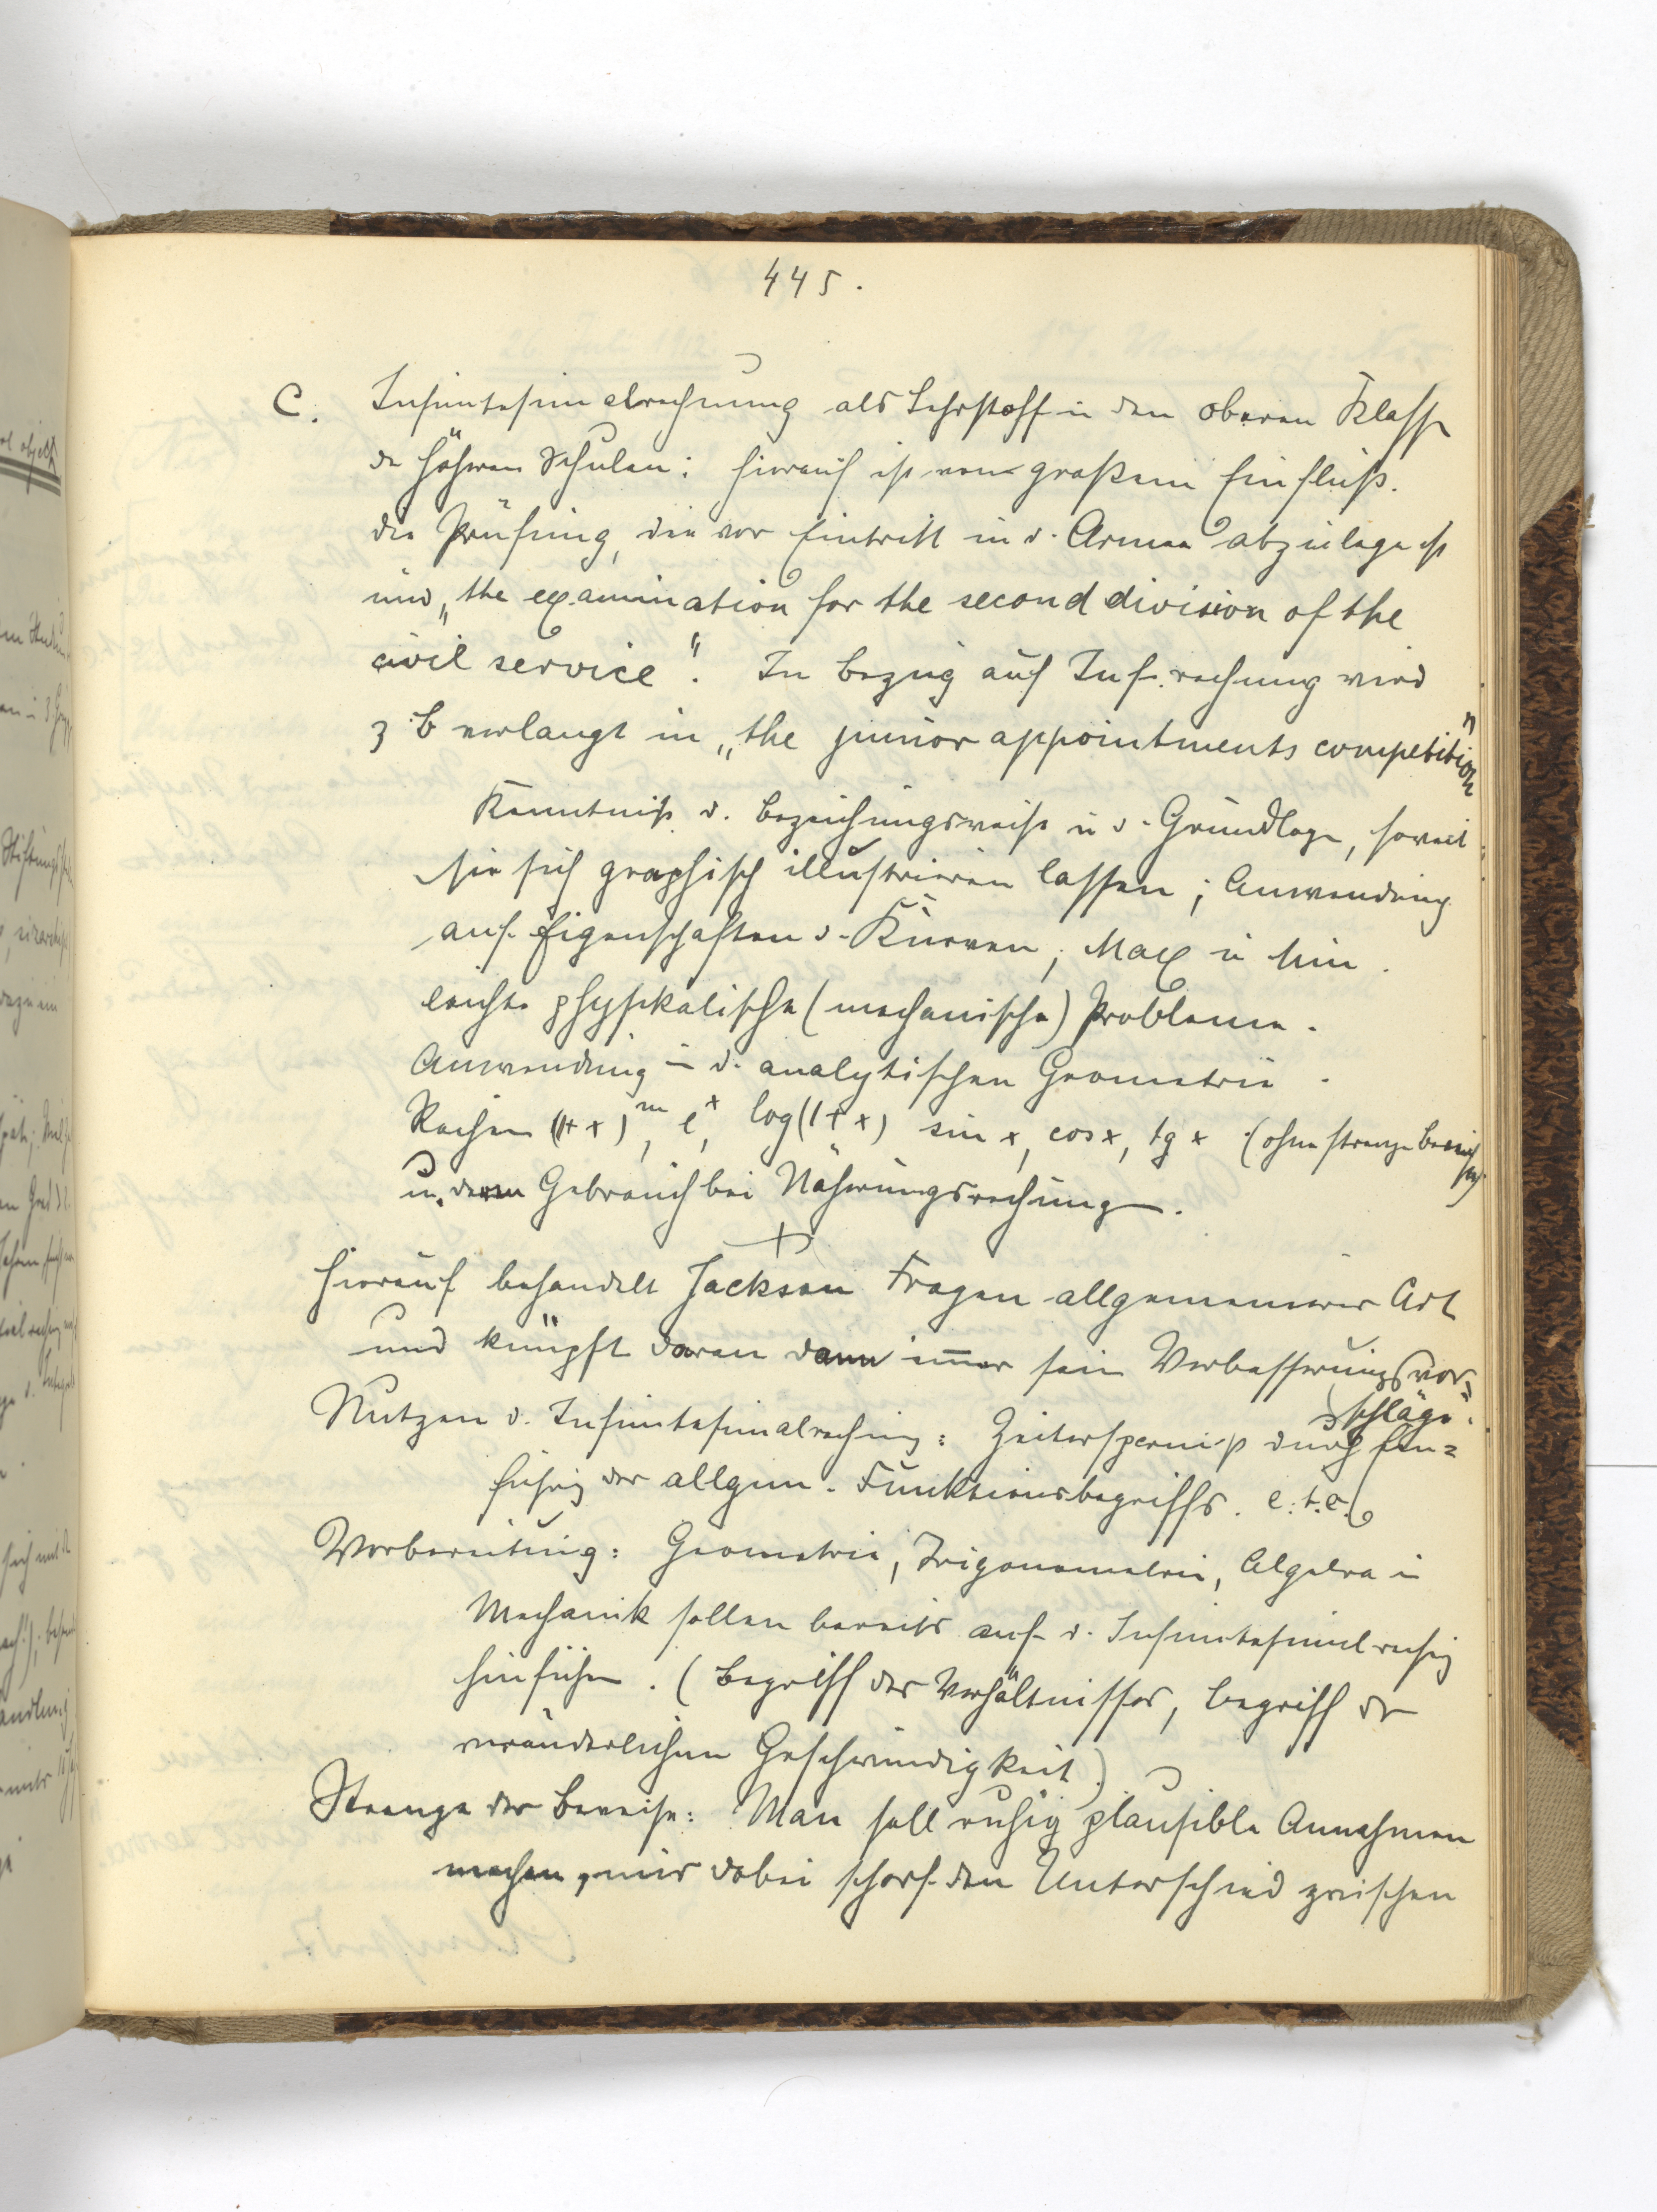 445.
C. Infinitesimalrechnung als Lehrstoff in den oberen Klassen
der höheren Schulen: Hierauf ist von großem Einfluß.
die Prüfung, die vor Eintritt in d. Armee abzulegen ist
und „the examination for the second division of the
civil service“. In Bezug auf Inf.rechnung wird
z B verlangt in „the junior appointments competition“
Kenntniß d. Bezeichnungsweise u d. Grundlage, soweit
sie sich graphisch illustrieren lassen; Anwendung
auf Eigenschaften d. Kurven, Max u Min.
leichte physikalische (mechanische) Probleme.
Anwendung in d. analytischen Geometrie.
Reihen (1+x)^m, e^x, log(1+x) sin x, cos x, tg x (ohne strenge Beweise)
u. deren Gebrauch bei Näherungsrechnungen.
Hierauf behandelt Jackson Fragen allgemeinerer Art
und knüpft daran dann im̅er sein Verbesserungsvor=
schläge.
Nutzen d. Infinitesimalrechnung: Zeitersparniß durch Ein=
führung des allgem. Funktionsbegriffs. e.t.c.
Vorbereitung: Geometrie, Trigonometrie, Algebra u
Mechanik sollen bereits auf d. Infinitesimalrechng
hinführen. (Begriff des Verhältnisses, Begriff der
veränderlichen Geschwindigkeit)
Strenge der Beweise: Man soll ruhig plausible Annahmen
machen, nur dabei scharf den Unterschied zwischen